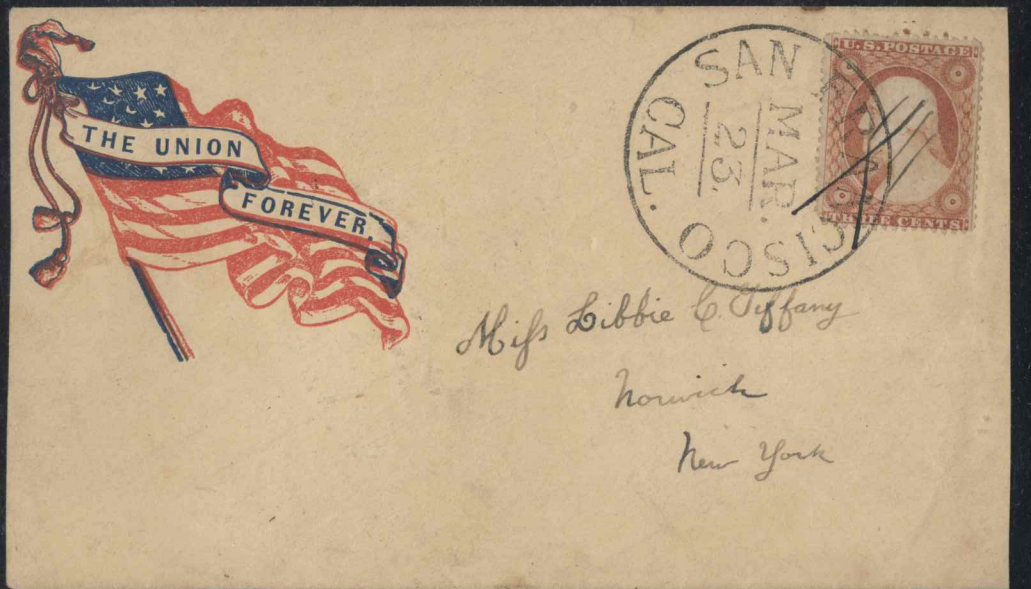 THE UNION
FOREVER.
SAN FRANCISCO
CAL.
MAR.
23.
U.S. POSTAGE
THREE CENTS
Miss Libbie C. Tiffany
Norwich
New York